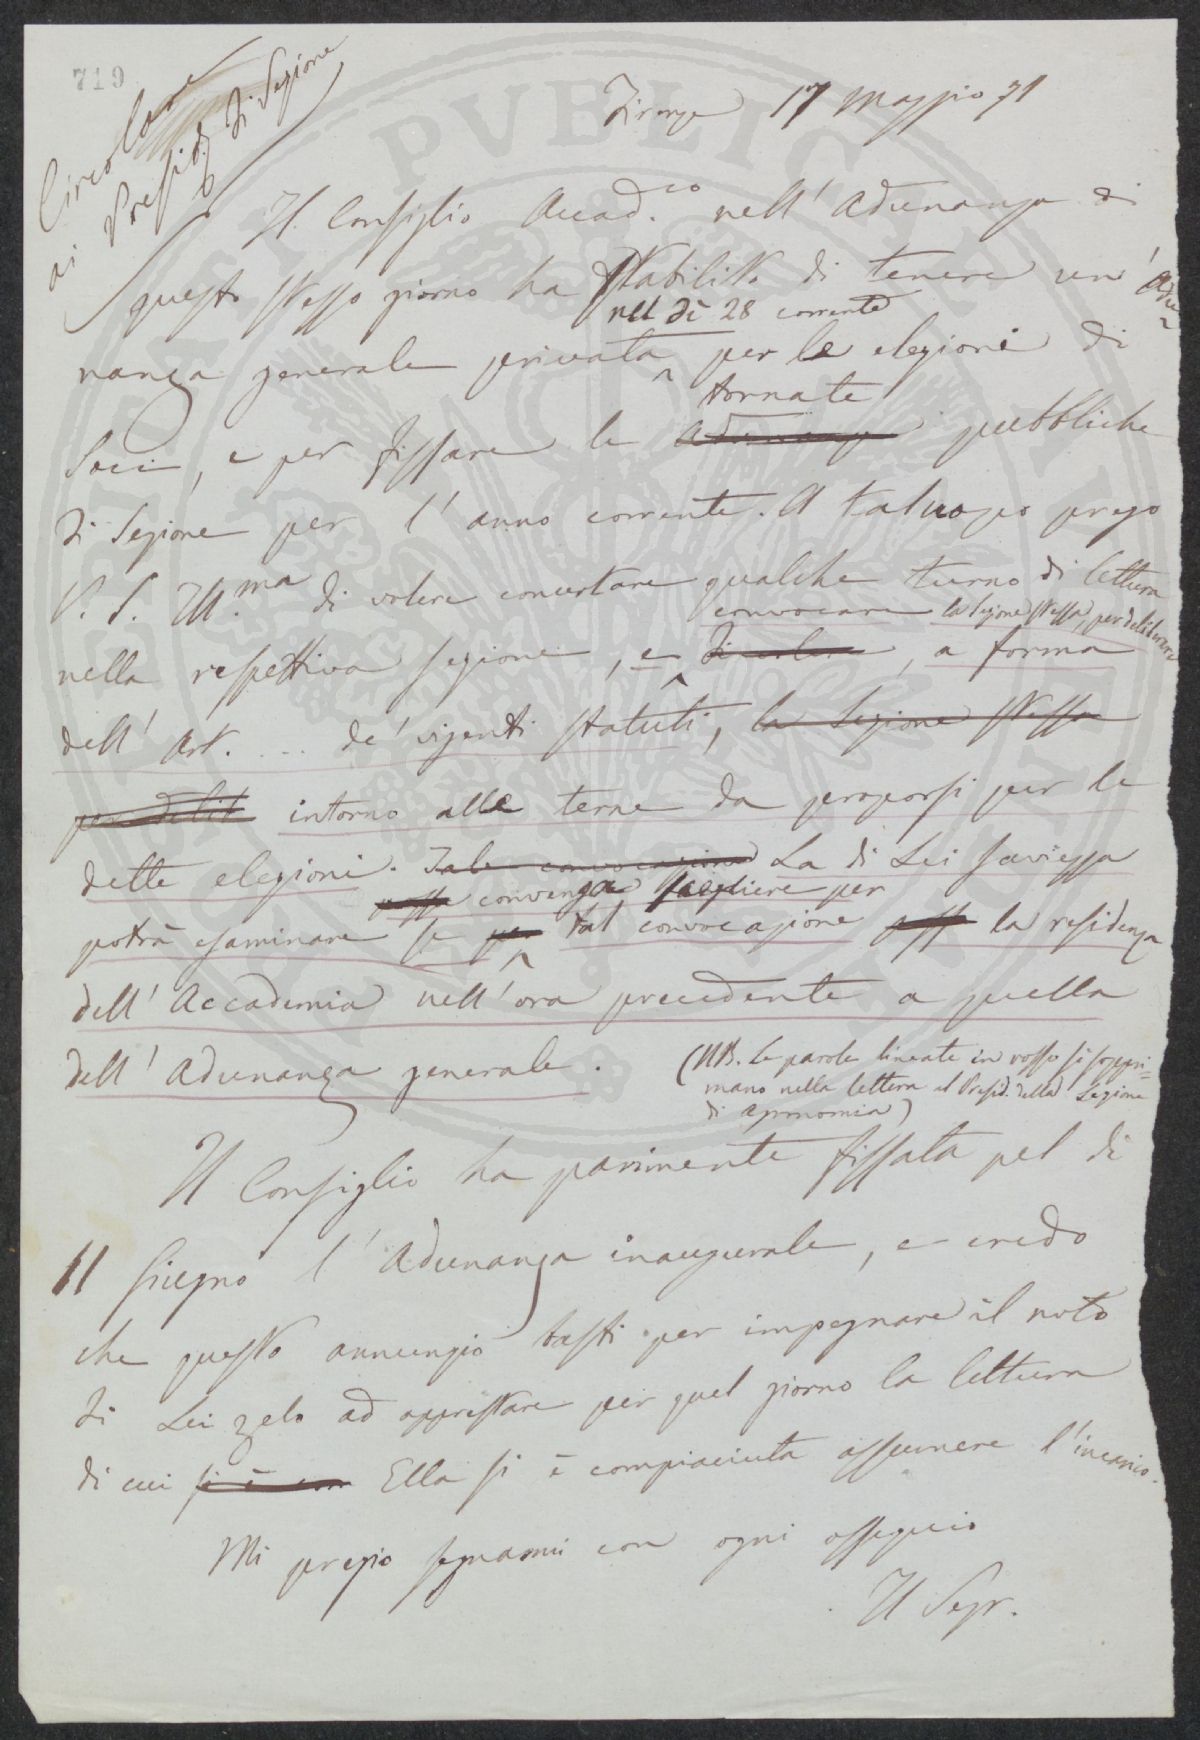 719
Circolare
ai Presid.ti di Sezione
Firenze 17 Maggio 71
Il Consiglio Accad.co nell' Adunanza di
questo stesso giorno ha stabilito di tenere un' Adu-
nel dì 28 corrente
nanza generale privata per le elezioni di
tornate
Soci, e per fissare le adunanze pubbliche
di Sezione per l' anno corrente. A tal uopo prego
V. S. Ill.ma di volere concertare qualche turno di lettura
convocare la Sezione stessa, per deliberare
nella respettiva sezione, e , a forma
dell' Art. ... de' vigenti statuti, la Sezione stessa
per delib intorno alle terne da proporsi per le
dette elezioni. Tale convocazione La di Lei saviezza
possa convenga scegliere per
potrà esaminare se per tal convocazione poss la residenza
dell' Accademia nell' ora precedente a quella
dell' Adunanza generale.
(NB. Le parole lineate in rosso si soppri-
mano nella lettera al Presid. della Sezione
di agronomia)
Il Consiglio ha parimente fissata pel dì
11 Giugno l' Adunanza inaugurale, e credo
che questo annunzio basti per impegnare il noto
di Lei zelo ad apprestare per quel giorno la lettura
di cui si è com Ella si è compiaciuta assumere l' incarico.
Mi pregio segnarmi con ogni ossequio
Il Segr.